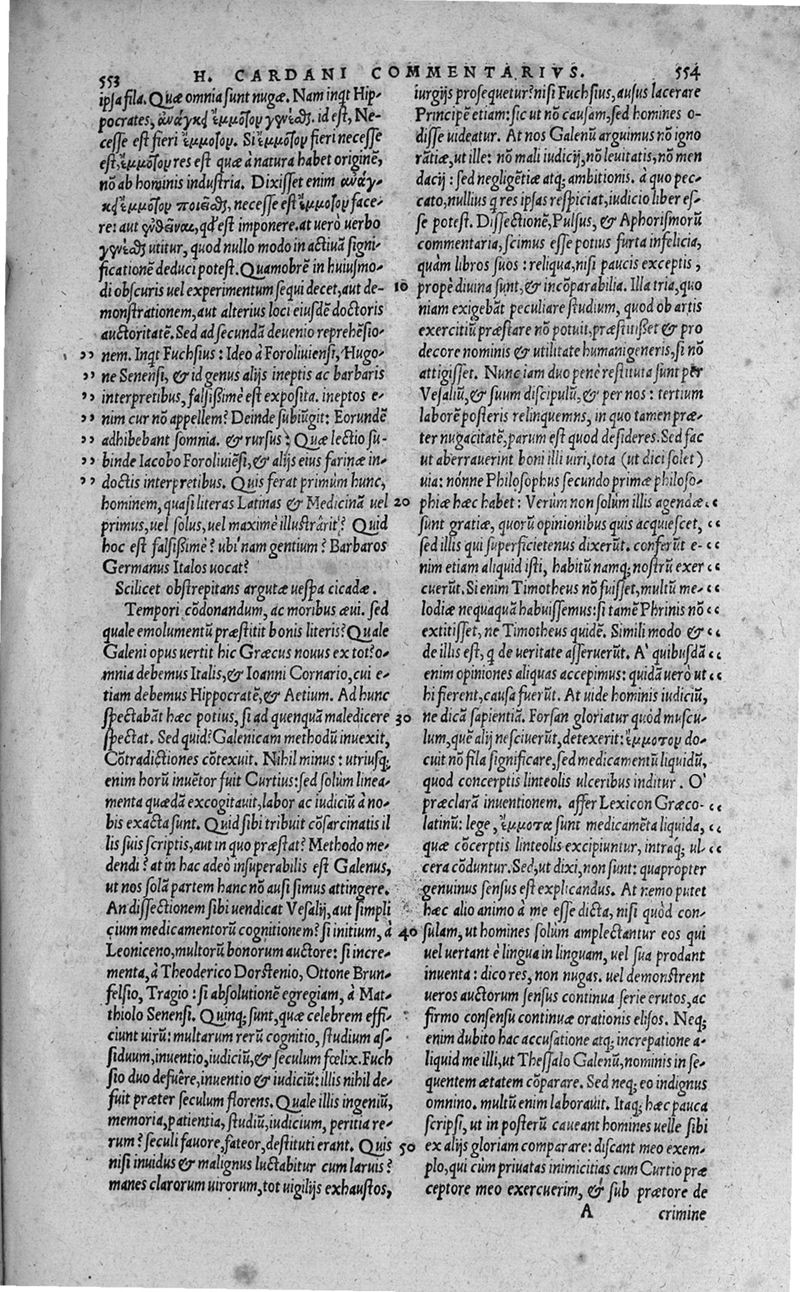 553 H. CARDANI COMMENTARIVS. 554
ipsa fila. Quæ omnia sunt nugæ. Nam inqt Hip-
pocrates, ἀνάγκη ἔμμοτον γενέσθαι. id est, Ne-
cesse est fieri ἔμμοτον. Si ἔμμοτον fieri necesse
est, ἔμμοτον res est quæ à natura habet originẽ,
nõ ab hominis industria. Dixisset enim ἀνάγ-
κη ἔμμοτον ποιεῖσθαι, necesse est ἔμμοτον face-
re: aut ἐνθεῖναι, qđ est imponere. at uerò uerbo
γενέσθαι utitur, quod nullo modo in actiuã signi-
ficationẽ deduci potest. Quamobrẽ in huiusmo-
di obscuris uel experimentum sequi decet, aut de-
monstrationem, aut alterius loci eiusdẽ doctoris
auctoritatẽ. Sed ad secundã deuenio reprehẽsio-
,, nem. Inqt Fuchsius: Ideo à Foroliuiensi, Hugo-
,, ne Senensi, & id genus alijs ineptis ac barbaris
,, interpretibus, falsißimè est exposita. ineptos e-
,, nim cur nõ appellem? Deinde subiũgit: Eorundẽ
,, adhibebant somnia. & rursus: Quæ lectio su-
,, binde Iacobo Foroliuiẽsi, & alijs eius farinæ in-
,, doctis interpretibus. Quis ferat primùm hunc,
hominem, quasi literas Latinas & Medicinã uel
primus, uel solus, uel maximè illustrârit? Quid
hoc est falsißimè? ubi'nam gentium? Barbaros
Germanus Italos uocat?
Scilicet obstrepitans argutæ uespa cicadæ.
Tempori cõdonandum, ac moribus æui. sed
quale emolumentũ præstitit bonis literis? Quale
Galeni opus uertit hic Græcus nouus ex tot? o-
mnia debemus Italis, & Ioanni Cornario, cui e-
tiam debemus Hippocratẽ, & Aetium. Ad hunc
spectabãt hæc potius, si ad quenquã maledicere
spectat. Sed quid? Galenicam methodũ inuexit,
Cõtradictiones cõtexuit. Nihil minus: utriusq;
enim horũ inuẽtor fuit Curtius: sed solùm linea-
menta quædã excogitauit, labor ac iudiciũ à no-
bis exacta sunt. Quid sibi tribuit cõsarcinatis il
lis suis scriptis, aut in quo præstat? Methodo me-
dendi? at in hac adeò insuperabilis est Galenus,
ut nos solã partem hanc nõ ausi simus attingere.
An dissectionem sibi uendicat Vesalij, aut simpli
cium medicamentorũ cognitionem? si initium, à
Leoniceno, multorũ bonorum auctore: si incre-
menta, à Theoderico Dorstenio, Ottone Brun-
felsio, Tragio: si absolutionẽ egregiam, à Mat-
thiolo Senensi. Quinq; sunt, quæ celebrem effi-
ciunt uirũ: multarum rerũ cognitio, studium as-
siduum, inuentio, iudiciũ, & seculum fœlix. Fuch
sio duo defuêre, inuentio & iudiciũ: illis nihil de-
fuit præter seculum florens. Quale illis ingeniũ,
memoria, patientia, studiũ, iudicium, peritia re-
rum? seculi fauore, fateor, destituti erant. Quis
nisi inuidus & malignus luctabitur cum laruis?
manes clarorum uirorum, tot uigilijs exhaustos,
iurgijs prosequetur? nisi Fuchsius, ausus lacerare
Principẽ etiam: sic ut nõ causam, sed homines o-
disse uideatur. At nos Galenũ arguimus nõ igno
rãtiæ, ut ille: nõ mali iudicij, nõ leuitatis, nõ men
dacij: sed negligẽtiæ atq; ambitionis. à quo pec-
cato, nullius q res ipsas respiciat, iudicio liber es-
se potest. Dissectionẽ, Pulsus, & Aphorismorũ
commentaria, scimus esse potius furta infelicia,
quàm libros suos: reliqua, nisi paucis exceptis,
10 propè diuina sunt, & incõparabilia. Illa tria, quo
niam exigebãt peculiare studium, quod ob artis
exercitiũ præstare nõ potuit, præstitißet & pro
decore nominis & utilitate humani generis, si nõ
attigisset. Nunc iam duo penè restituta sunt per
Vesaliũ, & suum discipulũ, & per nos: tertium
laborẽ posteris relinquemus, in quo tamen præ-
ter nugacitatẽ, parum est quod desideres. Sed fac
ut aberrauerint boni illi uiri, tota (ut dici solet)
uia: nónne Philosophus secundo primæ philoso-
20 phiæ hæc habet: Verùm non solùm illis agendæ ,,
sunt gratiæ, quorũ opinionibus quis acquiescet, ,,
sed illis qui superficietenus dixerũt. conferũt e- ,,
nim etiam aliquid isti, habitũ namq; nostrũ exer ,,
cuerũt. Si enim Timotheus nõ fuisset, multũ me- ,,
lodiæ nequaquã habuissemus: si tamẽ Phrinis nõ ,,
extitisset, ne Timotheus quidẽ. Simili modo & ,,
de illis est, q de ueritate asseruerũt. A' quibusdã ,,
enim opiniones aliquas accepimus: quidã uerò ut ,,
hi fierent, causa fuerũt. At uide hominis iudiciũ,
30 ne dicã sapientiã. Forsan gloriatur quòd muscu-
lum, quẽ alij nesciuerũt, detexerit: ἔμμοτον do-
cuit nõ fila significare, sed medicamentũ liquidũ,
quod concerptis linteolis ulceribus inditur. O'
præclarã inuentionem. affer Lexicon Græco- ,,
latinũ: lege, ἔμμοτα sunt medicamẽta liquida, ,,
quæ cõcerptis linteolis excipiuntur, intraq; ul ,,
cera cõduntur. Sed, ut dixi, non sunt: quapropter
genuinus sensus est explicandus. At nemo putet
hæc alio animo à me esse dicta, nisi quòd con-
40 sulam, ut homines solùm amplectantur eos qui
uel uertant è lingua in linguam, uel sua prodant
inuenta: dico res, non nugas. uel demonstrent
ueros auctorum sensus continua serie erutos, ac
firmo consensu continuæ orationis elisos. Neq;
enim dubito hac accusatione atq; increpatione a-
liquid me illi, ut Thessalo Galenũ, nominis in se-
quentem ætatem cõparare. Sed neq; eo indignus
omnino. multũ enim laborauit. Itaq; hæc pauca
scripsi, ut in posterũ caueant homines uelle sibi
50 ex alijs gloriam comparare: discant meo exem-
plo, qui cùm priuatas inimicitias cum Curtio præ
ceptore meo exercuerim, & sub prætore de
A crimine